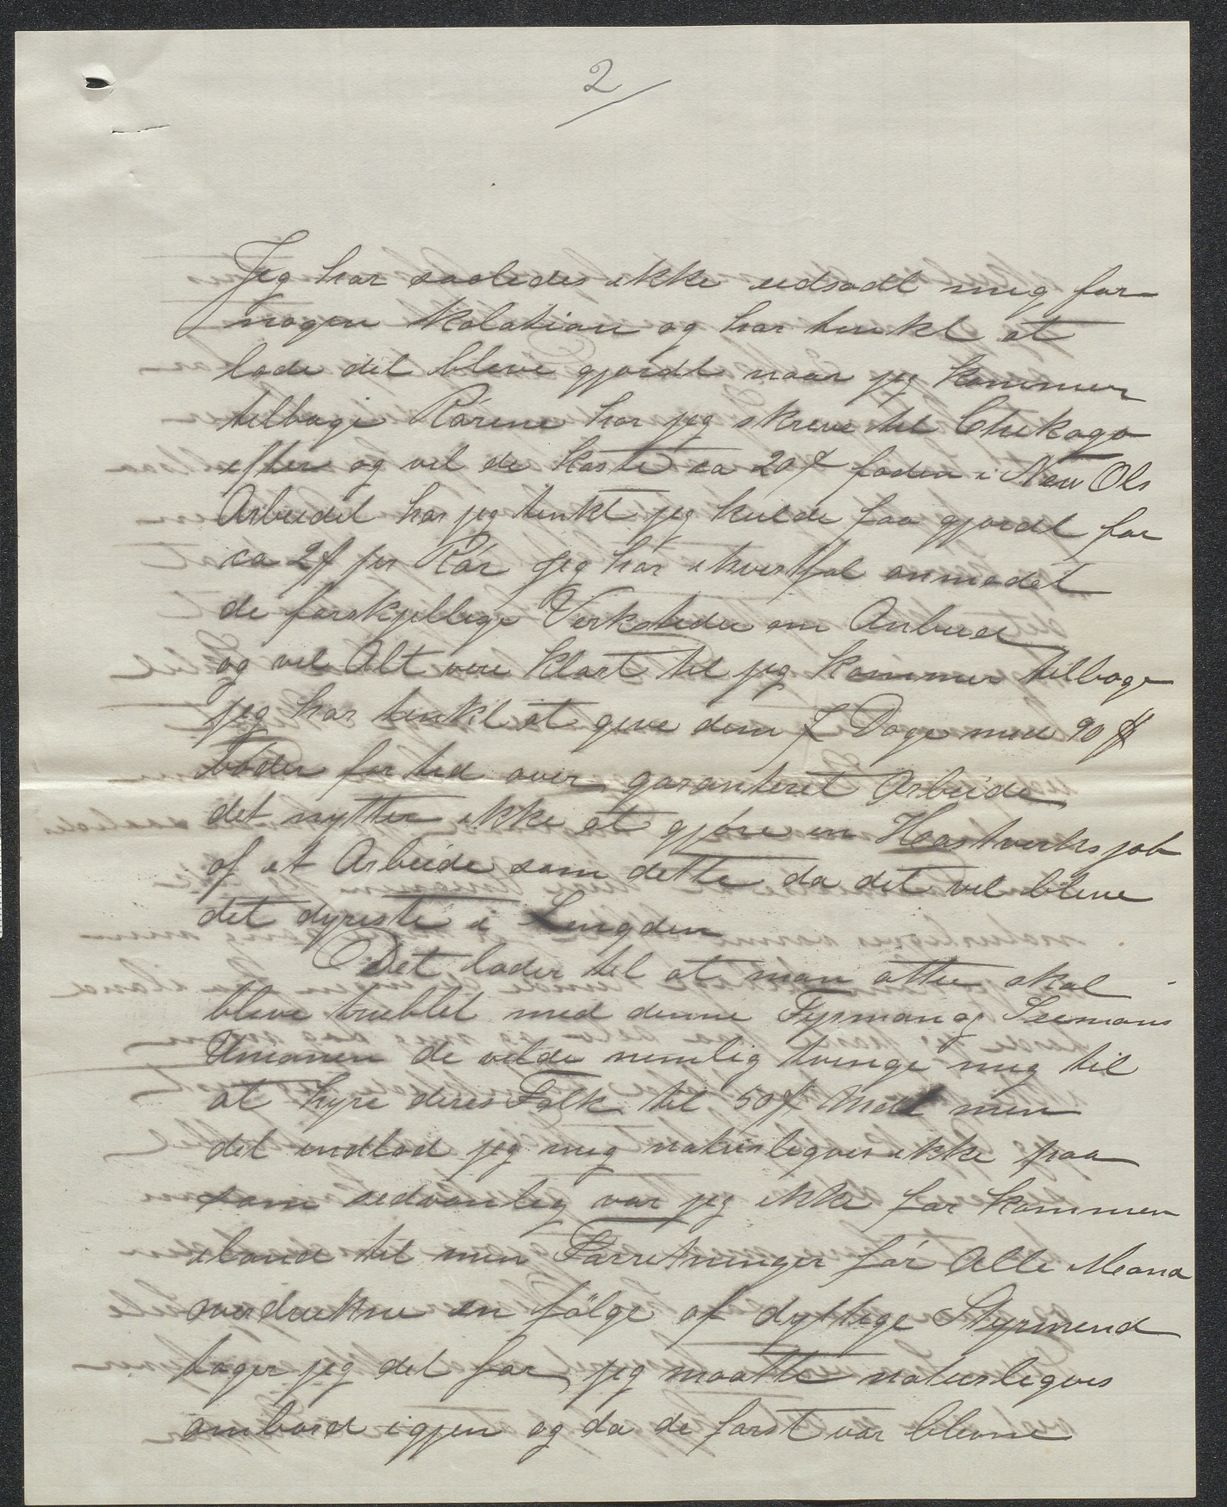 2
Jeg har saaledes ikke udsadt mig for
nogen Kalation og har tenkt at
lade det bleve gjordt naar jeg kommer
tilbage Rörene har jeg skreve til Chikago
efter og vil de koste ca 20 foden i New Ols
Arbeidet har jeg tenkt jeg kulde faa gjordt for
ca 2 per Rör jeg har ihvertfal anmodet
de forskjellige Verksteder om Anbude
og vil Alt vere klart til jeg kommer tilbage
jeg har tenkt at geve dem 7 Dage med 90 $
böder for tid over garanteret Arbeide
det nytter ikke at gjöre en Hastverks job
af et Arbeide som dette da det vil bleve
det dyreste i Lengden
Det lader til at man atter skal
bleve trublet med denne Fyrman og Seemans
Unionen de vilde nemlig tvinge mig til
at hyre deres Folk til 50 Mdl men
det indlod jeg mig naturligves ikke paa
som sedvanlig var jeg ikke för kommen
iland til min Forretninger för Alle Mand
overdrukne en fölge af dyktige Styrmend
tager jeg det for, jeg maatte naturligves
ombord igjen og da de först var blevne